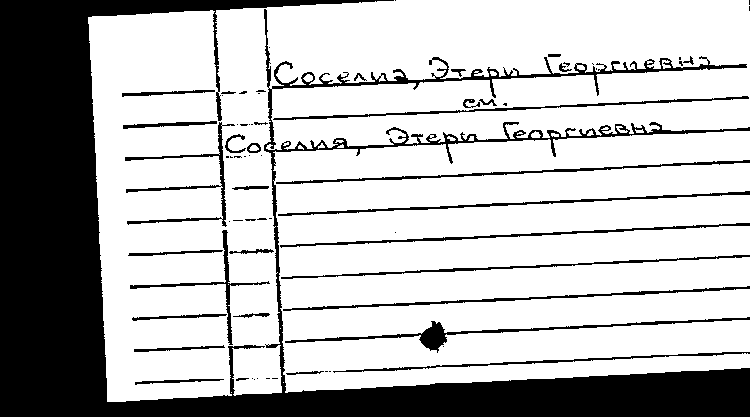 Соселиа, Этери Георгиевна
см.
Соселия, Этери Георгиевна